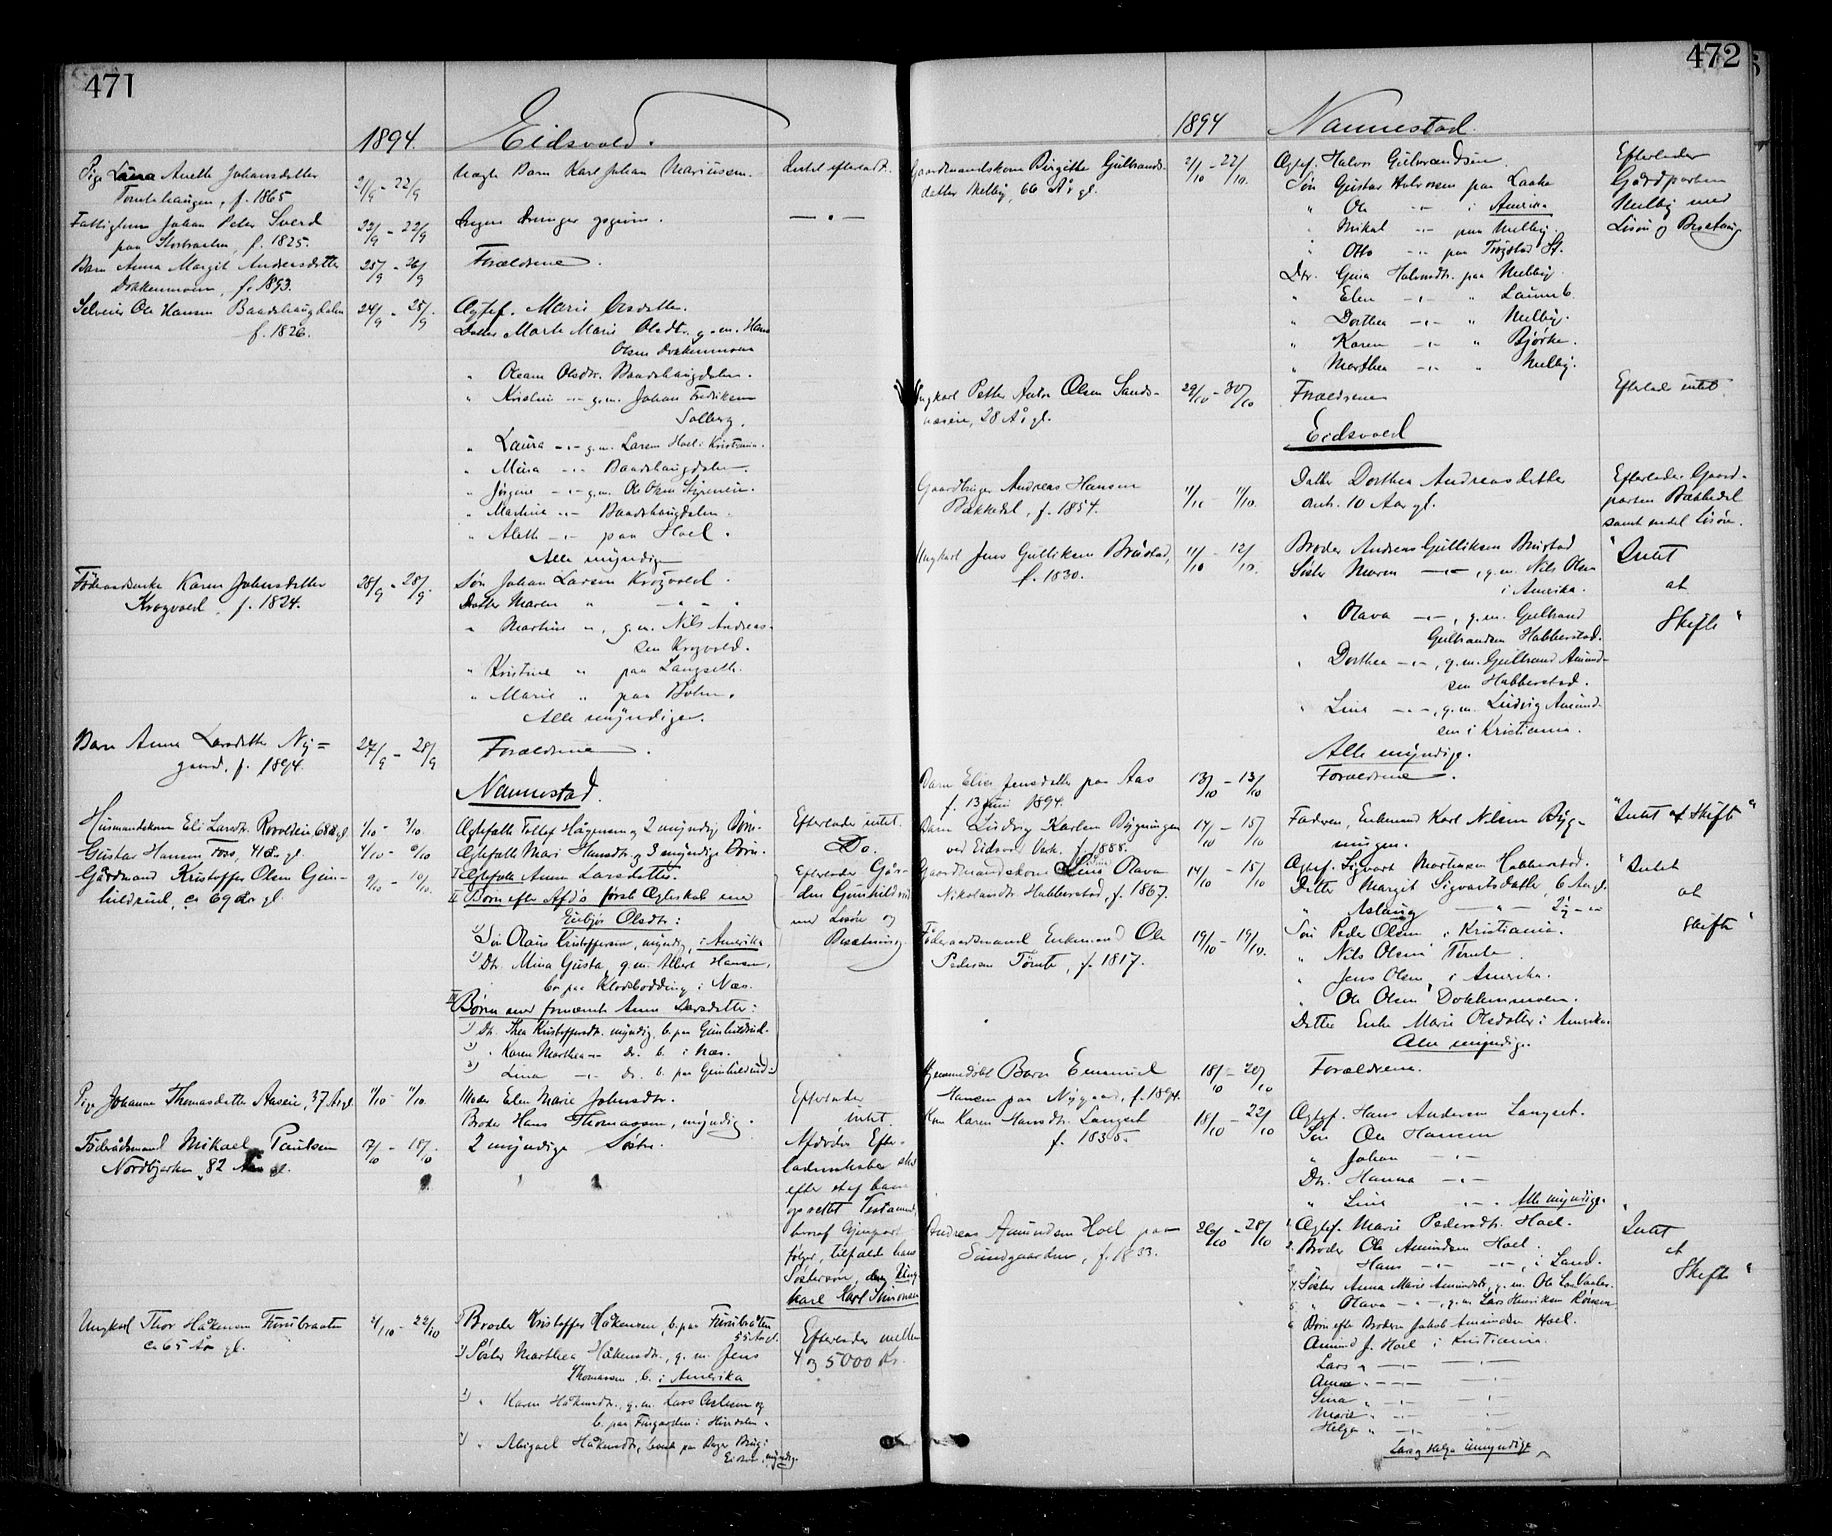 471
1894.
Eidsvold.
Pige Anette Johansdatter
Tomtehaugen, f. 1865
21/9 - 22/9
Uægte Barn Karl Johan Mariussen.
Intet efterladt.
Fattiglem Johan Peter Sverd
paa f. 1825.
22/9 - 22/9
Ingen Arvinger opgivne.
— " —
Barn Anna Margit Andersdatter
Dokkenmoen, f. 1893.
25/9 - 26/9
Forældrene.
Selveier Ole Hansen Baadshaugdalen
f. 1826.
24/9 - 25/9
Ægtef. Marie Olsdatter.
Datter Marte Marie Olsdt. g. m. Hans
Olsen Dokkenmoen
" Oleane Olsdtr. Baadshaugdalen.
" Kristine -"- g. m. Johan Fredriksen
Solberg.
" Laura -"- g. m. Larsen Hoel i Kristiania.
" Mina -"- Baadshaugdalen.
" Jørgine -"- g. m. Ole Olsen
" Martine -"- Baadshaugdalen.
" Aleth -"- paa Hoel.
Alle myndige
Føderaadsenke Karen Johnsdatter
Krogvold, f. 1824.
28/9 - 28/9.
Søn Johan Larsen Krogvold.
Datter Maren " — " —
" Martine ", g. m. Nils Andreas-
sen Krogvold.
" Kristine " paa Langseth.
" Marie " paa Bøhn.
Alle myndige.
Barn Anna Larsdatter Ny-
gaard, f. 1894.
27/9 - 28/9
Forældrene.
Nannestad.
Husmandskone Eli Larsdtr. 68 Aar gl.
1/10 - 2/10.
Ægtefælle Tollef Haagensen og 2 myndige Børn.
Efterlader intet.
Gustav Hansen Foss, 41 Aar gl.
4/10 - 6/10
Ægtefælle Mari Hansdtr. og 3 myndige Børn.
Do.
Gårdmand Kristoffer Olsen Gun-
hildrud, ca 69 Aar gl.
9/10 - 10/10.
I Ægtefælle Anne Larsdatter.
II Børn efter Afd's første Ægteskab med
Eubjør Olsdtr:
1) Søn Olaus Kristoffersen, myndig, i Amerika
2) Dtr. Mina Gusta, g. m. Albert Hansen,
bor paa Klodsbodding i Næs.
III Børn med fornævnte Anne Larsdatter:
1) Dtr. Thea Kristoffersdtr. myndig b. paa Gunhildrud.
2) " Karen Marthea -"- do. b. i Næs.
3) " Lina -"- do. b. paa Gunhildrud
Efterlader Går-
den Gunhildrud
med Løsøre og
Besætning.
Pige Johanne Thomasdatter Aaseie, 37 Aar gl.
11/10 - 11/10.
Moder Elen Marie Johnsdtr.
Broder Hans Thomassen, myndig.
Efterlader
intet.
Føderådsmand Mikael Paulsen
Nordbjerken, 82 Aar gl.
17/10 - 18/10.
2 myndige Søstre
Afdødes Efter-
ladenskaber skal
efter et af ham
oprettet Testament,
hvoraf Gjenpart
følger, tilfalde hans
Søstersøn, Ung-
karl Karl Simonsen
Ungkarl Thor Håkensen Furubraaten
ca 65 År gl.
21/10 - 22/10
1) Broder Kristoffer Håkensen, b. paa Furubråten
55 Aar gl.
2) Søster Marthea Håkensdtr., g. m. Jens
Thomasen, b. i Amerika
3) " Karen Håkensdtr., g. m. Lars og
b. paa i Hurdalen.
4) " Abigael Håkensdtr., boende paa Brug i
Eidsvold, myndig.
Efterlader mellem
4 og 5000 Kr.
472
1894
Nannestad.
Gaardmandskone Birgitte Gulbrands-
datter Melby, 66 År gl.
21/10 - 22/10.
Ægtef. Halvor Gulbrandsen
Søn Gustav Halvorsen paa Laake
" Ole -"- i Amerika
" Mikal -"- paa Melby.
" Otto -"- paa Trøgstad St.
Dtr. Gina Halvorsdtr. paa Melby.
" Elen -"- "
" Dorthea -"- " Melby.
" Karen -"- " Bjørke.
" Marthea -"- " Melby.
Efterlader
Gårdparten
Melby med
Løsøre og Besætning
Ungkarl Petter Anton Olsen Sands-
næseie, 28 År gl.
29/10 - 30/10
Forældrene
Efterlod intet.
Eidsvold
Gaardbruger Andreas Hansen
Bækkedal, f. 1854.
11/10 11/10.
Datter Dorthea Andreasdatter
omtr. 10 Aar gl.
Efterlader Gaard-
parten Bækkedal
samt endel Løsøre.
Ungkarl Jens Gulliksen Brustad,
f. 1830.
11/10 - 12/10.
Broder Andreas Gulliksen Brustad
Søster Maren -"-, g. m. Nils Olsen
i Amerika.
" Olava -"-, g. m. Gulbrand
Gulbrandsen Habberstad.
" Dorthea -"-, g. m. Gulbrand Amund-
sen Habberstad.
" Lina -"-, g. m. Ludvig Amund-
sen i Kristiania.
Alle myndige.
"Intet
at
Skifte"
Barn Elise Jensdatter paa Aas
f. 13 Juni 1894.
13/10 - 13/10
Forældrene.
Barn Ludvig Karlsen Bygningen
ved Eidsvold Verk, f. 1888.
14/10 - 15/10
Faderen, Enkemand Karl Nilsen Byg-
ningen.
"Intet at Skifte"
Gaardmandskone Olava
Nikolaidtr. Habberstad, f. 1867.
14/10 - 15/10
Ægtef. Sigvart Martinsen Habberstad.
Datter Margit Sigvartsdatter, 6 Aar gl.
" Aslaug — " — 2½ -"-
"Intet
at
Skifte"
Føderaadsmand Enkemand Ole
Pedersen Tømte, f. 1817.
19/10 - 19/10.
Søn Peder Olsen i Kristiania.
" Nils Olsen Tømte
" Jens Olsen i Amerika.
" Ole Olsen Dokkenmoen.
Datter Enke Marie Olsdatter i Amerika.
Alle myndige.
Hjemmedøbt Barn Emanuel
Hansen paa Nygaard, f. 1894.
18/10 - 20/10
Forældrene.
Kone Karen Hansdtr. Langset
f. 1835.
18/10 - 22/10
Ægtef. Hans Andersen Langset.
Søn Ole Hansen
" Johan -"-
Dtr. Hanna -"-
" Lina -"- Alle myndige.
Andreas Amundsen Hoel paa
Sandgaarden, f. 1833.
26/10 - 28/10
1. Ægtef. Marie Pedersdtr. Hoel.
2. Broder Ole Amundsen Hoel.
3. " Hans -"- -"-, i Land.
4. Søster Anna Marie Amundsdtr., g. m. Ole
5. " Olava -"-, g. m. Lars Henriksen
6. Børn efter Broderen Jakob Amundsen Hoel.
Amund J. Hoel i Kristiania.
Lars " -"-
Anna " -"-
Sina " -"-
Marie " -"-
Helga " -"-
Lars og Helga umyndige
"Intet
at
Skifte"